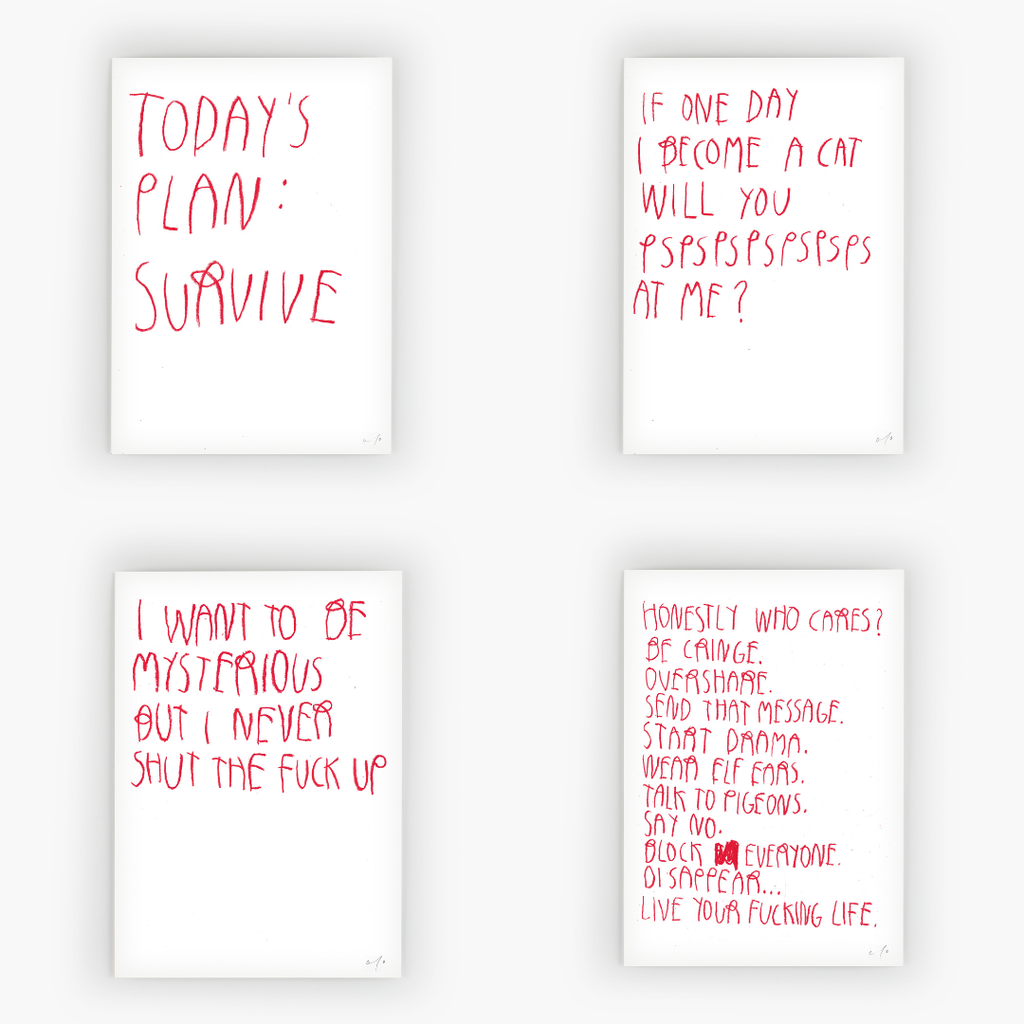 TODAY'S
PLAN:
SURVIVE
IF ONE DAY
I BECOME A CAT
WILL YOU
PSPSPSPSPSPSPS
AT ME?
I WANT TO BE
MYSTERIOUS
BUT I NEVER
SHUT THE FUCK UP
HONESTLY WHO CARES?
BE CRINGE.
OVERSHARE.
SEND THAT MESSAGE.
START DRAMA.
WEAR ELF EARS.
TALK TO PIGEONS.
SAY NO.
BLOCK EVERYONE.
DISAPPEAR...
LIVE YOUR FUCKING LIFE.